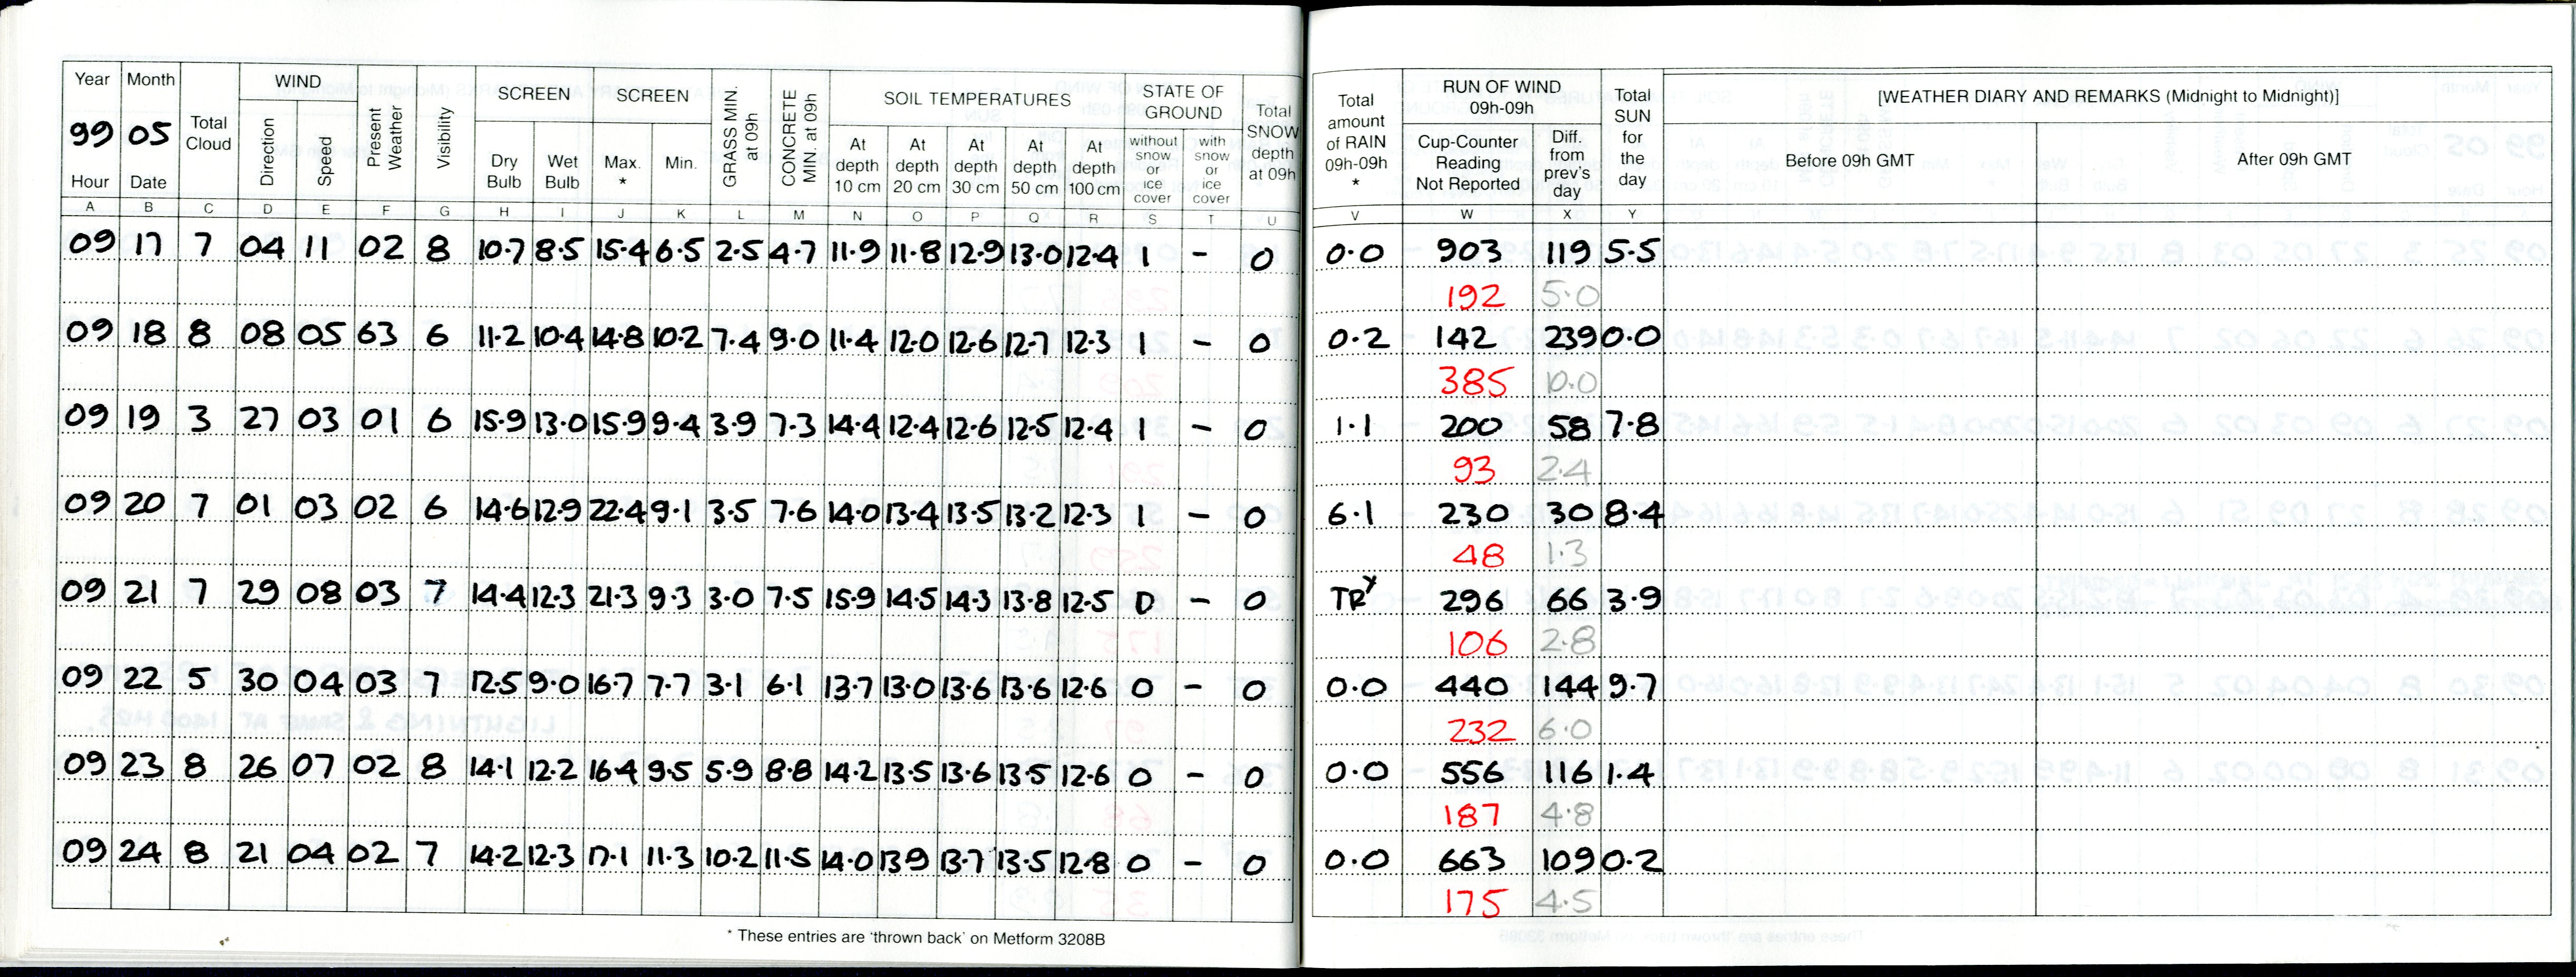 Year Month WIND SCREEN SCREEN SOIL TEMPERATURES STATE OF GROUND RUN OF WIND 09h-09h [WEATHER DIARY AND REMARKS (Midnight to Midnight)]
99 05 Total Cloud Direction Speed Present Weather Visibility Dry Bulb Wet Bulb Max. * Min. GRASS MIN. at 09h CONCRETE MIN. at 09h At depth 10 cm At depth 20 cm At depth 30 cm At depth 50 cm At depth 100 cm without snow or ice cover with snow or ice cover Total SNOW depth at 09h Total amount of RAIN 09h-09h * Cup-Counter Reading Not Reported Diff. from prev's day Total SUN for the day Before 09h GMT After 09h GMT
Hour Date
A B C D E F G H I J K L M N O P Q R S T U V W X Y
09 17 7 04 11 02 8 10.7 8.5 15.4 6.5 2.5 4.7 11.9 11.8 12.9 13.0 12.4 1 - 0 0.0 903 119 5.5
192 5.0
09 18 8 08 05 63 6 11.2 10.4 14.8 10.2 7.4 9.0 11.4 12.0 12.6 12.7 12.3 1 - 0 0.2 142 239 0.0
385 10.0
09 19 3 27 03 01 6 15.9 13.0 15.9 9.4 3.9 7.3 14.4 12.4 12.6 12.5 12.4 1 - 0 1.1 200 58 7.8
93 2.4
09 20 7 01 03 02 6 14.6 12.9 22.4 9.1 3.5 7.6 14.0 13.4 13.5 13.2 12.3 1 - 0 6.1 230 30 8.4
48 1.3
09 21 7 29 08 03 7 14.4 12.3 21.3 9.3 3.0 7.5 15.9 14.5 14.3 13.8 12.5 0 - 0 TR 296 66 3.9
106 2.8
09 22 5 30 04 03 7 12.5 9.0 16.7 7.7 3.1 6.1 13.7 13.0 13.6 13.6 12.6 0 - 0 0.0 440 144 9.7
232 6.0
09 23 8 26 07 02 8 14.1 12.2 16.4 9.5 5.9 8.8 14.2 13.5 13.6 13.5 12.6 0 - 0 0.0 556 116 1.4
187 4.8
09 24 8 21 04 02 7 14.2 12.3 17.1 11.3 10.2 11.5 14.0 13.9 13.7 13.5 12.8 0 - 0 0.0 663 109 0.2
175 4.5
* These entries are 'thrown back' on Metform 3208B